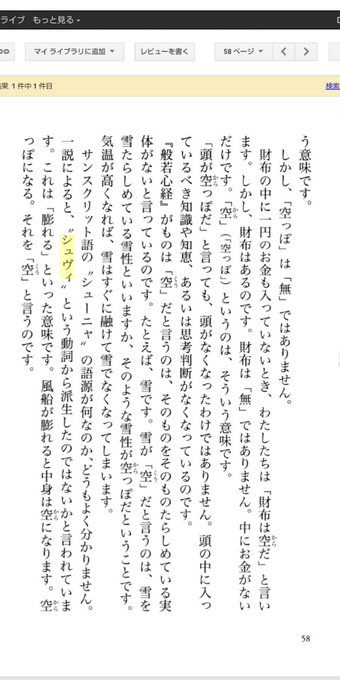 ライブ もっと見る
マイ ライブラリに追加
レビューを書く
58 ページ
結果: 1 件中 1 件目
検索
う意味です。
しかし、「空っぽ」は「無」ではありません。
財布の中に一円のお金も入っていないとき、わたしたちは「財布は空だ」と言い
ます。しかし、財布はあるのです。財布は「無」ではありません。中にお金がない
だけです。「空」(「空っぽ」)というのは、そういう意味です。
「頭が空っぽだ」と言っても、頭がなくなったわけではありません。頭の中に入っ
ているべき知識や知恵、あるいは思考判断がなくなっているのです。
『般若心経』がものは「空」だと言うのは、そのものをそのものたらしめている実
体がないと言っているのです。たとえば、雪です。雪が「空」だと言うのは、雪を
雪たらしめている雪性といいますか、そのような雪性が空っぽだということです。
気温が高くなれば、雪はすぐに融けて雪でなくなってしまいます。
サンスクリット語の〝シューニャ〟の語源が何なのか、どうもよく分かりません。
一説によると、〝シュヴィ〟という動詞から派生したのではないかと言われていま
す。これは「膨れる」といった意味です。風船が膨れると中身は空になります。空
っぽになる。それを「空」と言うのです。
58